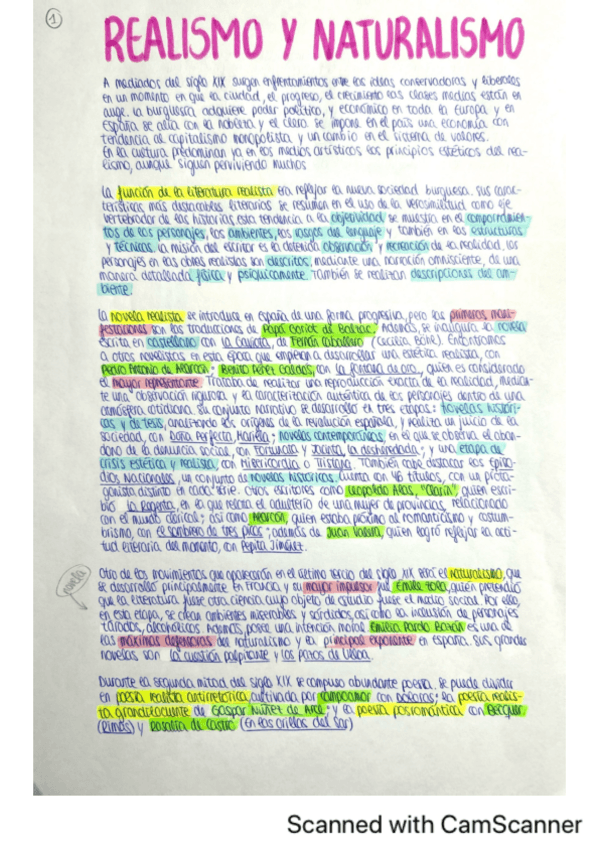 1
REALISMO Y NATURALISMO
A mediados del siglo XIX surgen enfrentamientos entre las ideas conservadoras y liberales
en un momento en que la ciudad, el progreso, el crecimiento las clases medias están en
auge. La burguesía adquiere poder político, y económico en toda la Europa y en
España se alía con la nobleza y el clero se impone en el país una economía con
tendencia al capitalismo monopolista y un cambio en el sistema de valores.
En la cultura predominan ya en los medios artísticos los principios estéticos del rea-
lismo, aunque siguen perviviendo muchos
La función de la literatura realista era reflejar la nueva sociedad burguesa. Sus carac-
terísticas más destacables literarios se resumen en el uso de la verosimilitud como eje
vertebrador de las historias esta tendencia a la objetividad se muestra en el comportamien-
tos de los personajes, los ambientes, los rasgos del lenguaje y también en las estructuras
y técnicas. La misión del escritor es la detenida observación y recreación de la realidad, los
personajes en las obras realistas son descritos, mediante una narración omnisciente, de una
manera detallada física y psíquicamente También se realizan descripciones del am-
biente.
La novela realista se introduce en España de una forma progresiva, pero las primeras mani-
festaciones son las traducciones de Papá Goriot de Balzac. Además, se inaugura la novela
escrita en castellano con La Gaviota, de Fernán Caballero (Cecilia Böhl). Encontramos
a otros novelistas en esta época que empiezan a desarrollar una estética realista, con
Pedro Antonio de Alarcón; Benito Pérez Galdós, con La Fontana de oro, quien es considerado
el mayor representante. Trataba de realizar una reproducción exacta de la realidad, median-
te una observación rigurosa y la caracterización auténtica de los personajes dentro de una
atmósfera cotidiana su conjunto narrativo se desarrolla en tres etapas: novelas históri-
cas y de tesis, analizando los orígenes de la revolución española, y realiza un juicio de la
sociedad, con Doña Perfecta, Marila; novelas contemporáneas en el que se observa el aban-
dono de la denuncia social, con Fortunata y Jacinta, La desheredada; y una etapa de
crisis estética y realista, con Misericordia o Tristana. También cabe destacar los Episo-
dios Nacionales, un conjunto de novelas históricas, cuenta con 46 títulos, con un prota-
gonista distinto en cada serie. Otros escritores como Leopoldo Alas, "Clarín", quien escri-
bió La Regenta, en la que relata el adulterio de una mujer de provincias, relacionado
con el mundo clerical; así como Alarcón, quien estaba próximo al romanticismo y costum-
brismo, con el sombrero de tres picos; además de Juan Valera, quien logró reflejar la acti-
tud literaria del momento, con Pepita Jiménez.
novela
Otro de los movimientos que aparecerán en el último tercio del siglo XIX será el naturalismo, que
se desarrolló principalmente en Francia y su mayor impulsor fue Émile Zola, quien pretendió
que la literatura fuese otra ciencia cuyo objeto de estudio fuese el medio social. Por ello,
en esta etapa, se crean ambientes miserables y sórdidos, así como la inclusión de personajes
tarados, alcohólicos. Además, posee una intención moral. Emilia Pardo Bazán es una de
las máximas defensoras del naturalismo y la principal exponente en España. Sus grandes
novelas son La cuestión palpitante y Los pazos de Ulloa.
Durante la segunda mitad del siglo XIX se compuso abundante poesía. Se puede dividir
en poesía realista antirretórica, cultivada por Campoamor con Doloras; la poesía realis-
ta grandilocuente de Gaspar Núñez de Arce; y la poesía posromántica con Bécquer
(Rimas) y Rosalía de Castro (En las orillas del Sar)
Scanned with CamScanner